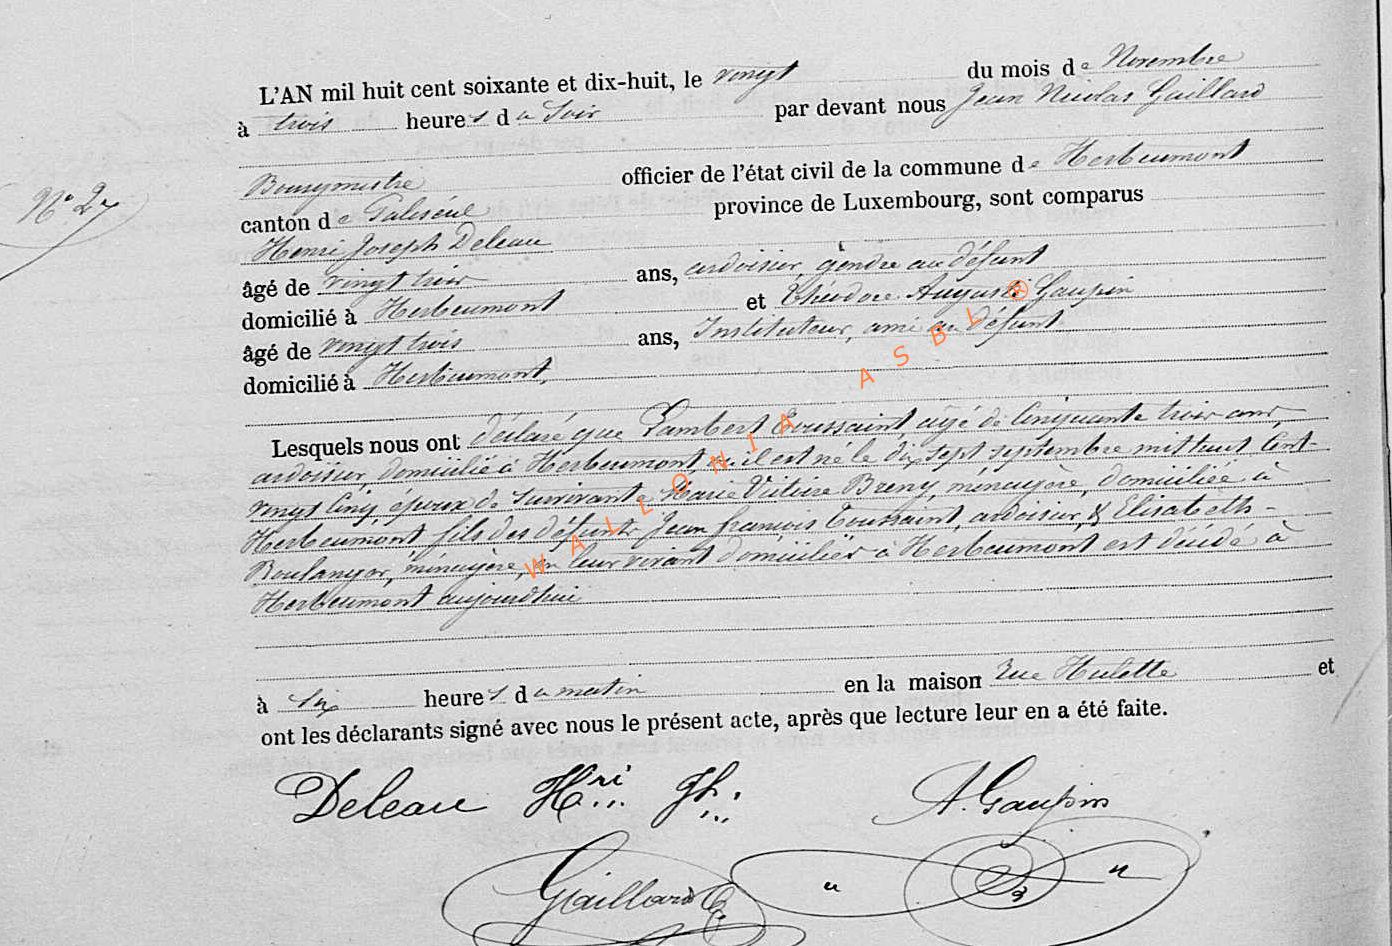 L'AN mil huit cent soixante et dix-huit, le vingt du mois de Novembre
à trois heures du Soir par devant nous Jean Nicolas Gaillard
Bourgmestre officier de l'état civil de la commune de Herbeumont
N° 27
canton de Paliseul province de Luxembourg, sont comparus
Henri Joseph Deleau
âgé de vingt trois ans, ardoisier, gendre au défunt
domicilié à Herbeumont et Théodore Auguste Gaupin
âgé de vingt trois ans, Instituteur, ami au défunt
domicilié à Herbeumont,
Lesquels nous ont déclaré que Lambert Toussaint, agé de Cinquante trois ans
ardoisier, domicilié à Herbeumont où il est né le dix sept septembre mil huit Cent
vingt Cinq, époux de survivante Marie Victoire Breny, ménagère, domiciliée à
Herbeumont fils des défunts Jean françois Toussaint, ardoisier, & Elisabeth
Boulanger, ménagère, en leur vivant domiciliés à Herbeumont est décédé à
Herbeumont aujourd'hui
WALLONIA ASBL ®
à six heures du matin en la maison rue Hulette et
ont les déclarants signé avec nous le présent acte, après que lecture leur en a été faite.
Deleau Hri Jh. A. Gaupin
Gaillard